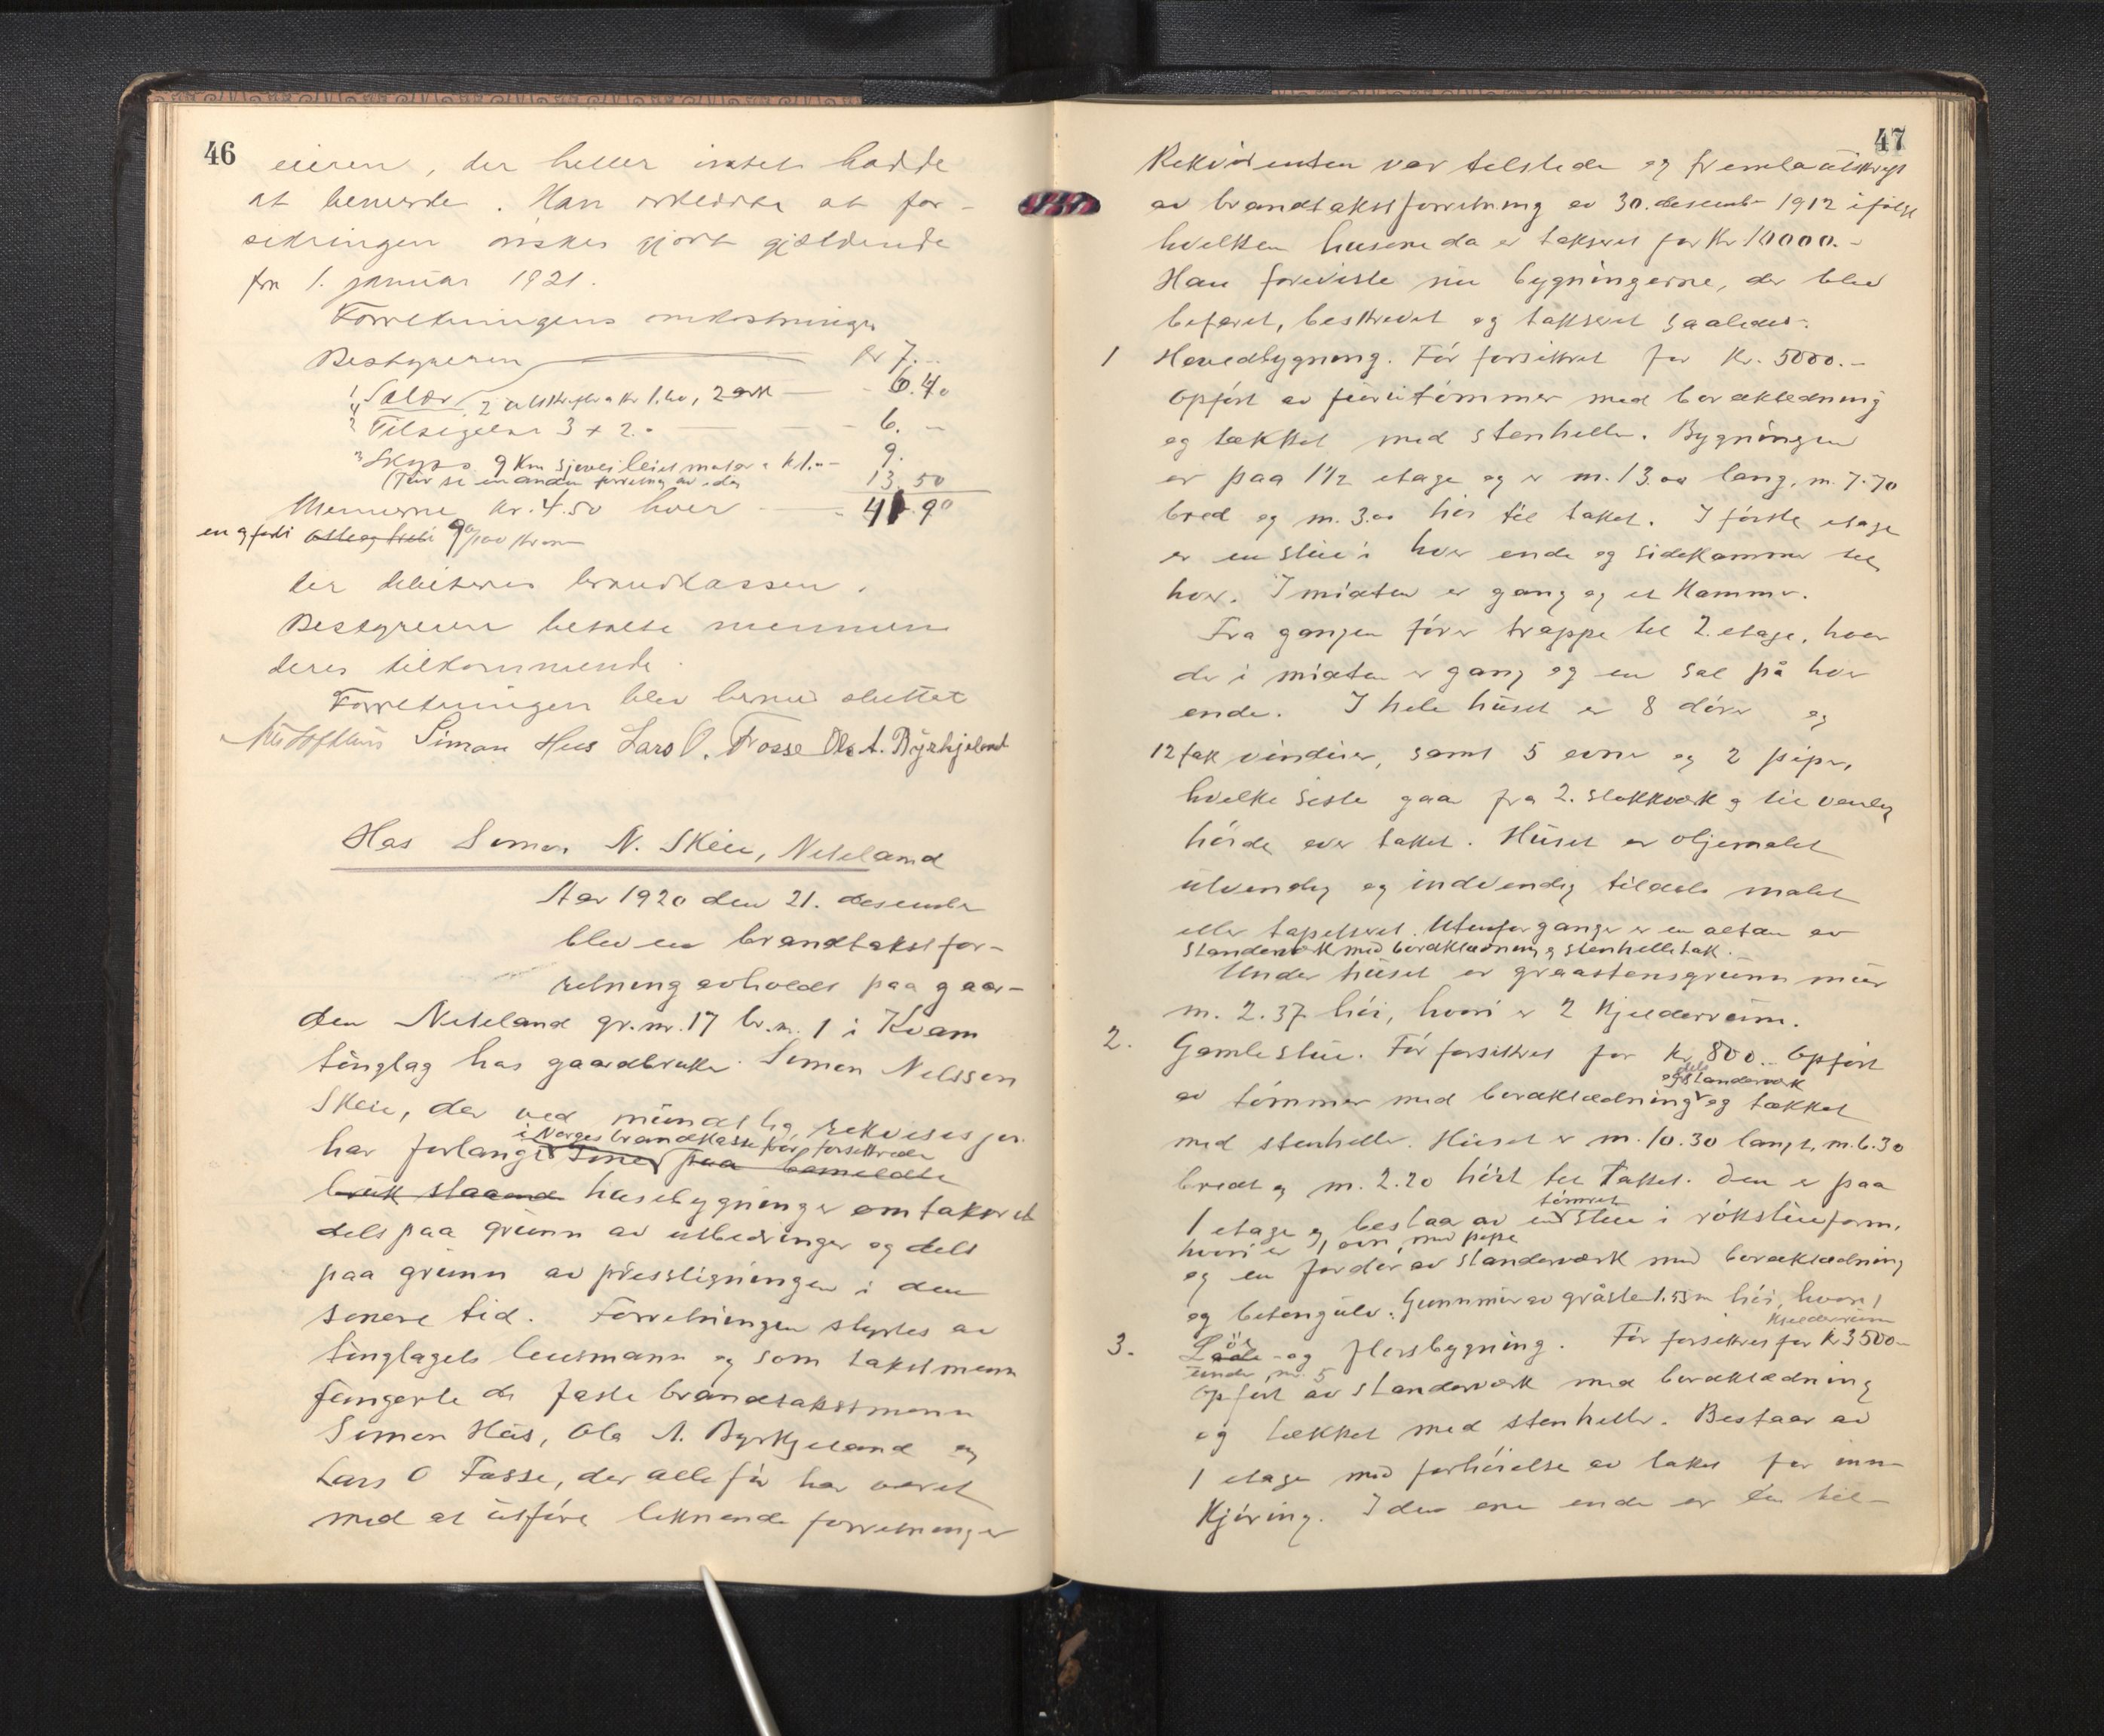 46
eieren, der heller intet hadde
at bemerke. Han ønsker at for-
sikringen ønskes gjort gjældende
fra 1. januar 1921.
Forretningens omkostninger
Bestyreren kr 7.-
1/ Salær, 2 utskrifter a kr 1.60, 2 ark - 6.40
2 Tilsigelse 3 x 2.- - 6. -
3 Skyss 9 Km sjøvei leiet motor a kr 1.-- 9.
(Tur se en anden forretning av idag 13.50
Mennene kr. 4.50 hver - 41.90
en og førti 90/100 kroner
der debiteres brandkassen.
Bestyreren betalte mennene
deres tilkommende.
Forretningen blev hermed sluttet
Simon Hus Lars O. Fosse Ola A. Byrkjeland
Hos Simon N. Skeie, Neteland
Aar 1920 den 21. desember
blev en brandtakstfor-
retning avholdt paa gaar-
den Neteland gr.nr. 17 br.n. 1 i Kvam
tinglag hos gaardbruker Simon Nelsson
Skeie, der ved mundtlig rekvisisjon
i Norges brandkasse før forsikrede
har forlangt sine paa bemeldte
bruk staaende husebygninger omtakseret
dels paa grunn av utbedringer og dels
paa grunn av prisstigningen i den
senere tid. Forretningen styrtes av
tinglagets lensmann og som takstmenn
fungerte de faste brandtakstmenn
Simon Hus, Ola A. Byrkjeland og
Lars O Fosse, der alle før har været
med at utføre liknende forretninger
47
Rekvirenten var tilstede og fremla utskrift
av brandtakstforretning av 30. desember 1912 ifølge
hvilken husene da er takseret for Kr 10000.-
Han foreviste nu bygningerne, der blev
befaret, beskrevet og takseret saaledes:
1 Hovedbygning. Før forsikret for Kr. 5000.-
Opført av furutømmer med bordklædning
og tækket med stenheller. Bygningen
er paa 1 1/2 etage og er m. 13.00 lang, m. 7.70
bred og m. 3.00 høi til taket. I første etage
er en stue i hver ende og sidekammer til
hver. I midten er gang og et kammer.
Fra gangen fører trappe til 2. etage, hvor
der i midten er gang og en sal på hver
ende. I hele huset er 8 dører og
12 fak vinduer, samt 5 ovner og 2 piper,
hvilke siste gaar fra 2. stokkverk og til vanlig
høide over taket. Huset er oljemalet
utvendig og indvendig tildels malet
eller tapetseret. Utenfor gangen er en altan av
standerverk med bordklædning og stenhelletak.
Under huset er graastensgrunnmur
m. 2.37 høi, hvori er 2 kjelderrum.
2. Gamlestue. Før forsikret for kr 800.- Opført
dels
og standerverk
av tømmer med bordklædning og tækket
med stenheller. Huset er m. 10.30 langt, m. 6.30
bredt og m. 2.20 høit til taket. Den er paa
tømret
1 etage og bestaar av en stue i røkstueform,
hvori er 1 ovn med pipe
og en fordør av standerværk med bordklædning
og betongulv. Grunnmur av gråsten 1.53 m høi, hvori 1
kjelderrum
3. Lade- og florsbygning. Før forsikret for kr 3500.-
under nr. 5
Opført av standerværk med bordklædning
og tækket med stenheller. Bestaar av
1 etage med forhøielse av taket for inn-
kjøring. I den ene ende er en til-